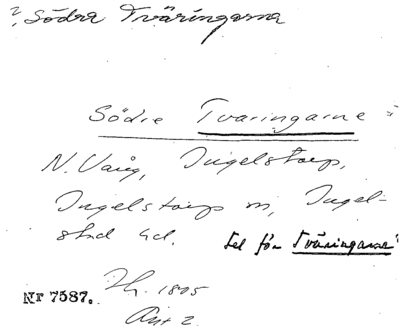 Södra Tväringarna
Södre Tvaringarne
N. Vång, Ingelstorp,
Ingelstorp sn, Ingel-
stad hd. Se för Tväringarna
Nr 7587. Th. 1805
Akt 2